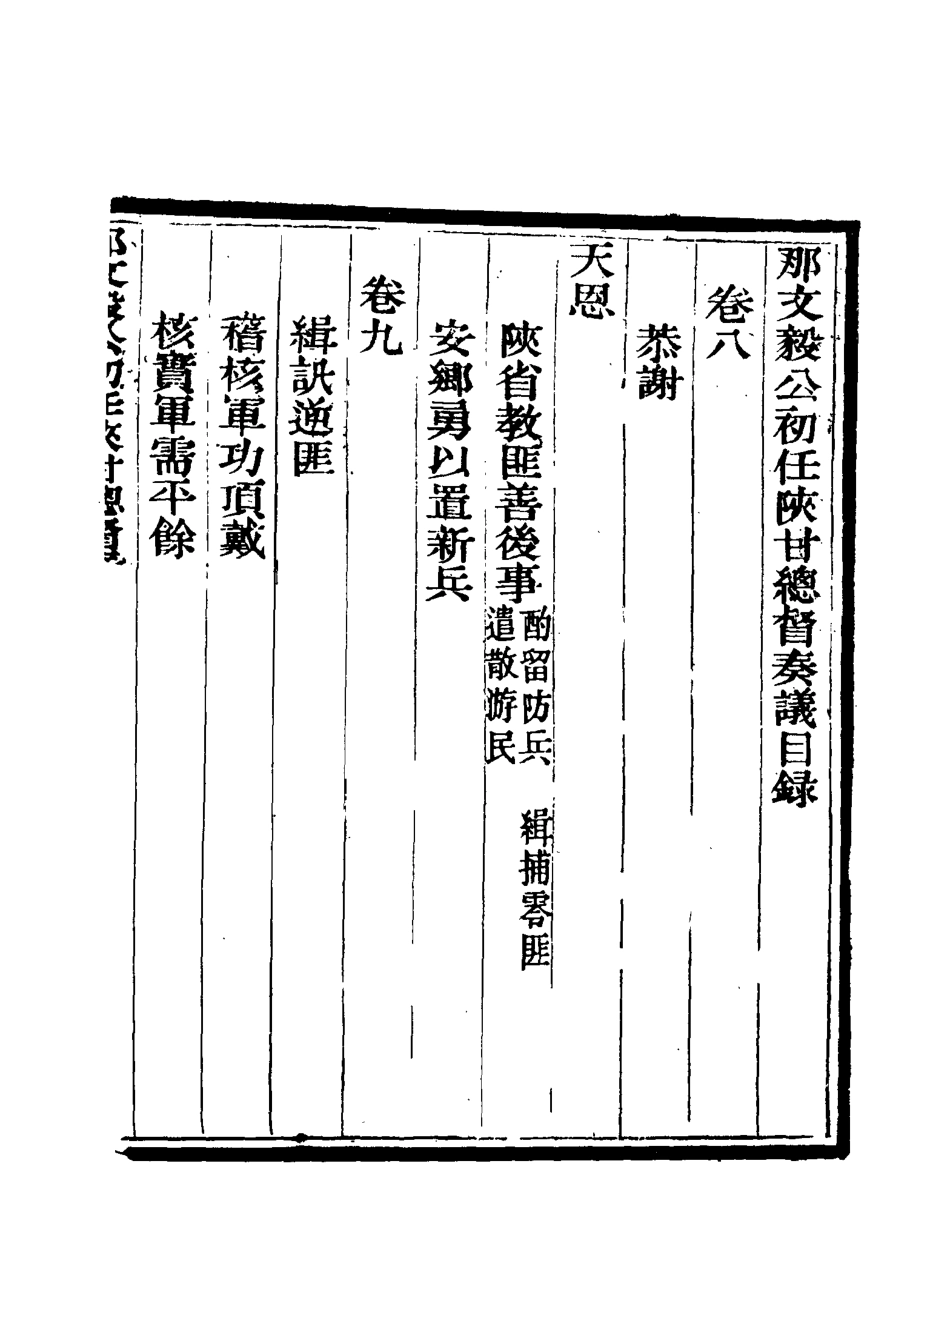 那文毅公初任陜甘總督奏議目録
卷八
恭謝
天恩
陜省教匪善後事
酌留防兵 緝捕零匪
遣散游民
安鄉勇以置新兵
卷九
緝訊逆匪
稽核軍功頂戴
核實軍需平餘